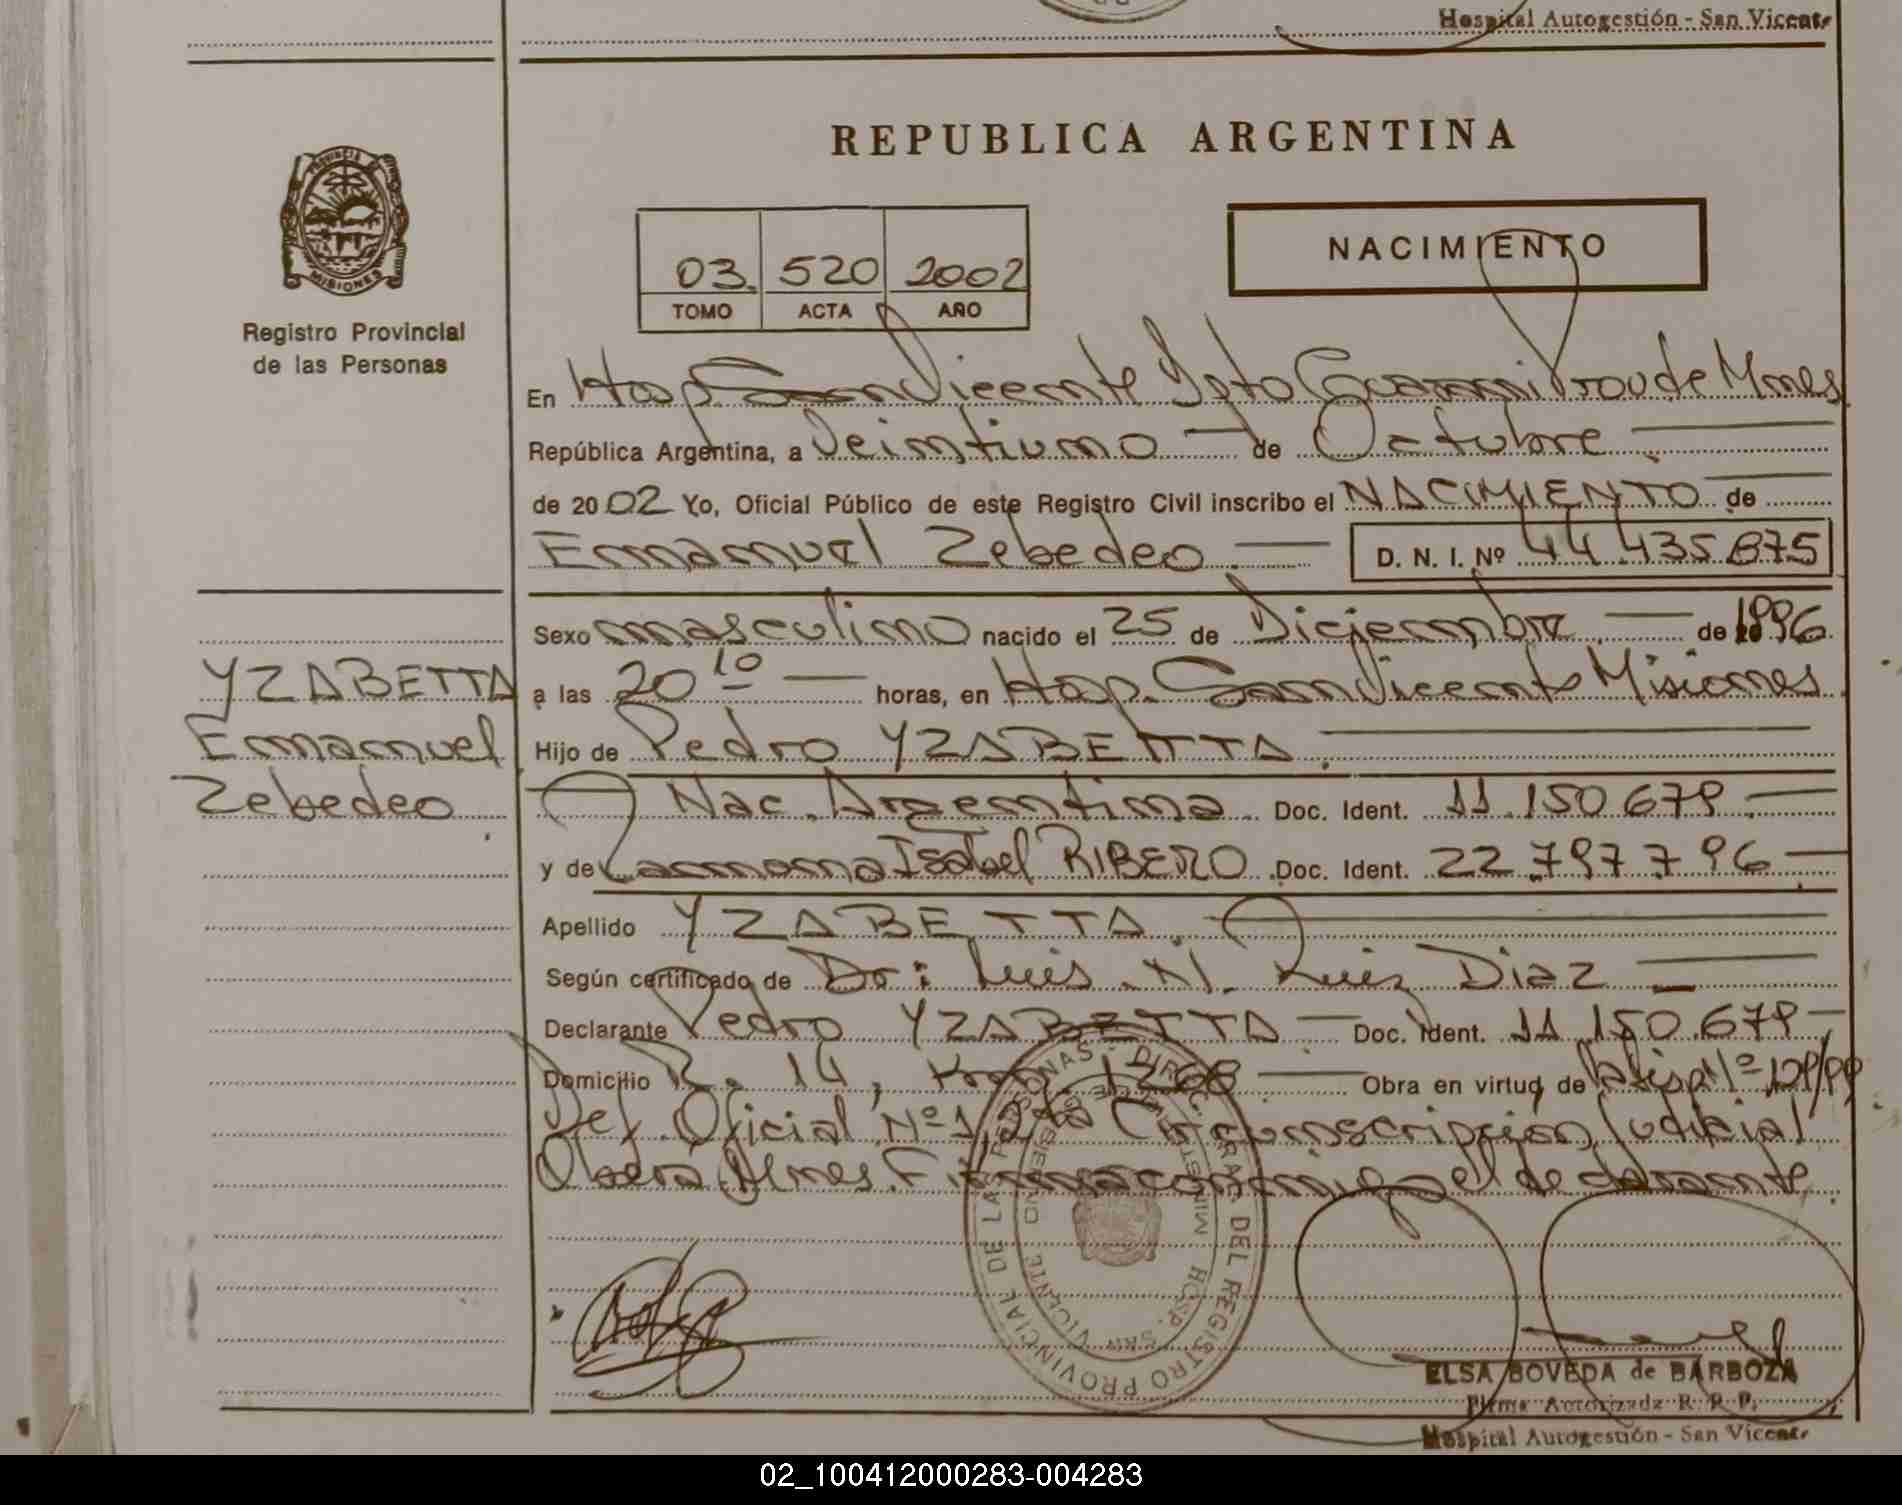 Hospital Autogestión - San Vicente
REPUBLICA ARGENTINA
PROVINCIA DE
MISIONES
Registro Provincial
de las Personas
03. 520 2002
TOMO ACTA AÑO
NACIMIENTO
En Hosp. San Vicente Dpto Guarani Prov de Mnes
República Argentina, a Veintiuno de Octubre
de 2002 Yo, Oficial Público de este Registro Civil inscribo el NACIMIENTO de
Emmanuel Zebedeo D. N. I. Nº 44 435 875
Sexo masculino nacido el 25 de Diciembre de 1996
a las 20 10 horas, en Hosp. San Vicente Misiones
Hijo de Pedro YZABETTA
Nac. Argentina Doc. Ident. 11.150.679
y de Ramona Isabel RIBERO Doc. Ident. 22.797.796
Apellido YZABETTA
Según certificado de Dr: Luis N. Ruiz Diaz
Declarante Pedro YZABETTA Doc. Ident. 11.150.679
Domicilio R. 14, Km. 1268 Obra en virtud de
Def. Oficial Nº 1, 2da Circunscripcion Judicial
Obera Mnes. Firma conmigo el declarante.
YZABETTA
Emmanuel
Zebedeo
REGISTRO PROVINCIAL DE LAS PERSONAS
HOSP. SAN VICENTE
ELSA BOVEDA de BARBOZA
Firma Autorizada R. P. P.
Hospital Autogestión - San Vicente
02_100412000283-004283